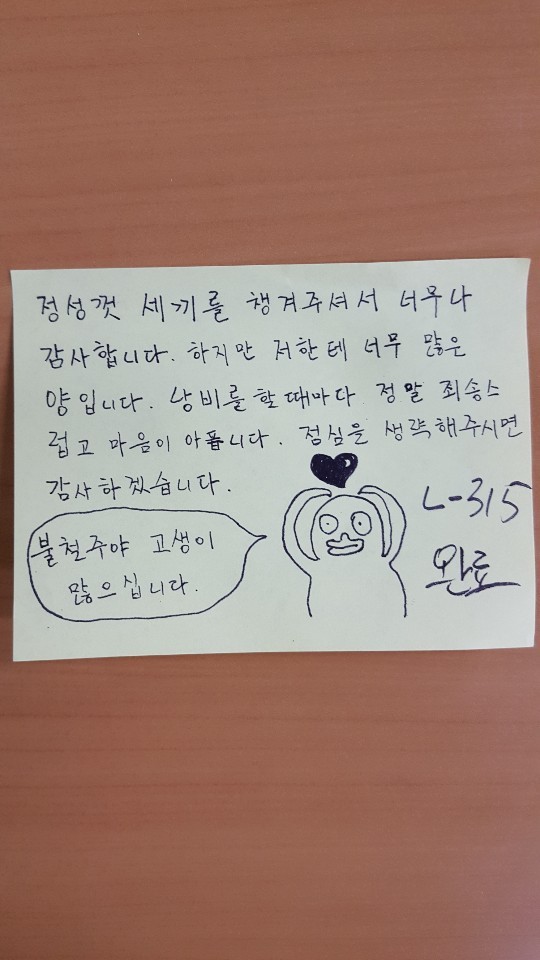 정성껏 세끼를 챙겨주셔서 너무나
감사합니다. 하지만 저한테 너무 많은
양입니다. 낭비를 할때마다 정말 죄송스
럽고 마음이 아픕니다. 점심을 생략해주시면
감사하겠습니다.
불철주야 고생이
많으십니다.
L-315
완료